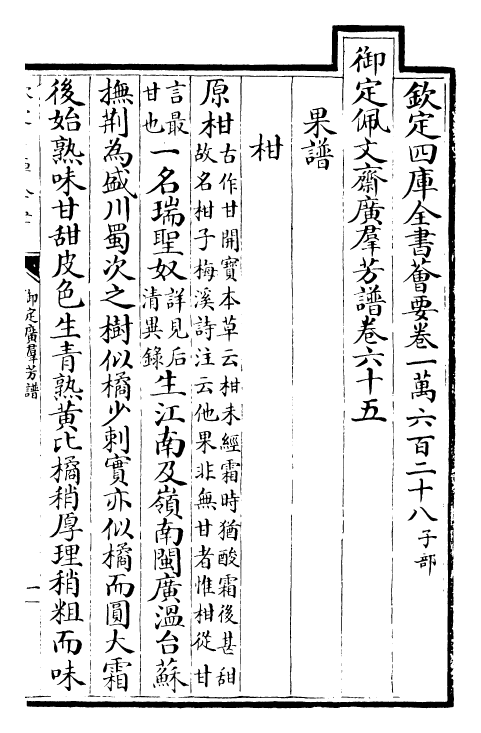 欽定四庫全書薈要卷一萬六百二十八 子部
御定佩文齋廣羣芳譜卷六十五
果譜
柑
原柑古作甘開寶本草云柑未經霜時猶酸霜後甚甜故名柑子梅溪詩注云他果非無甘者惟柑從甘
言最甘也一名瑞聖奴詳見后清異錄生江南及嶺南閩廣溫台蘇
撫荆為盛川蜀次之樹似橘少刺實亦似橘而圓大霜
後始熟味甘甜皮色生青熟黃比橘稍厚理稍粗而味
御定廣羣芳譜
一